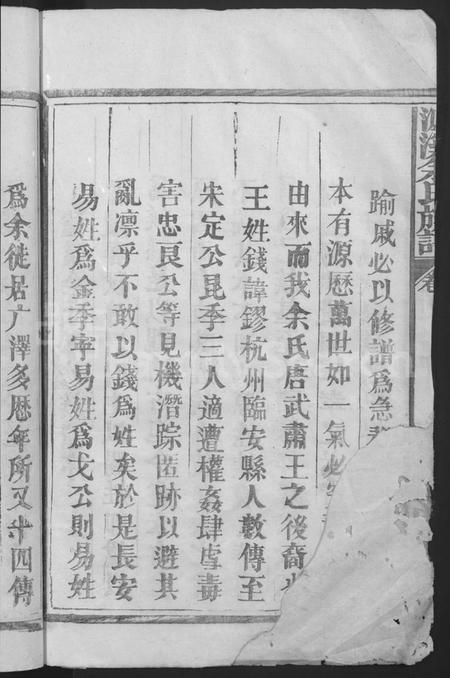 余氏族譜
踰戚必以修譜為急
本有源歷萬世如一氣必
由來而我余氏唐武肅王之後裔
王姓錢諱鏐杭州臨安縣人數傳至
宋定公昆季三人適遭權姦肆虐毒
害忠良公等見機潛踪匿跡以避其
亂凛乎不敢以錢為姓矣於是長安
易姓為金季寧易姓為戈公則易姓
為余徒居广澤多歷年所又十四傳